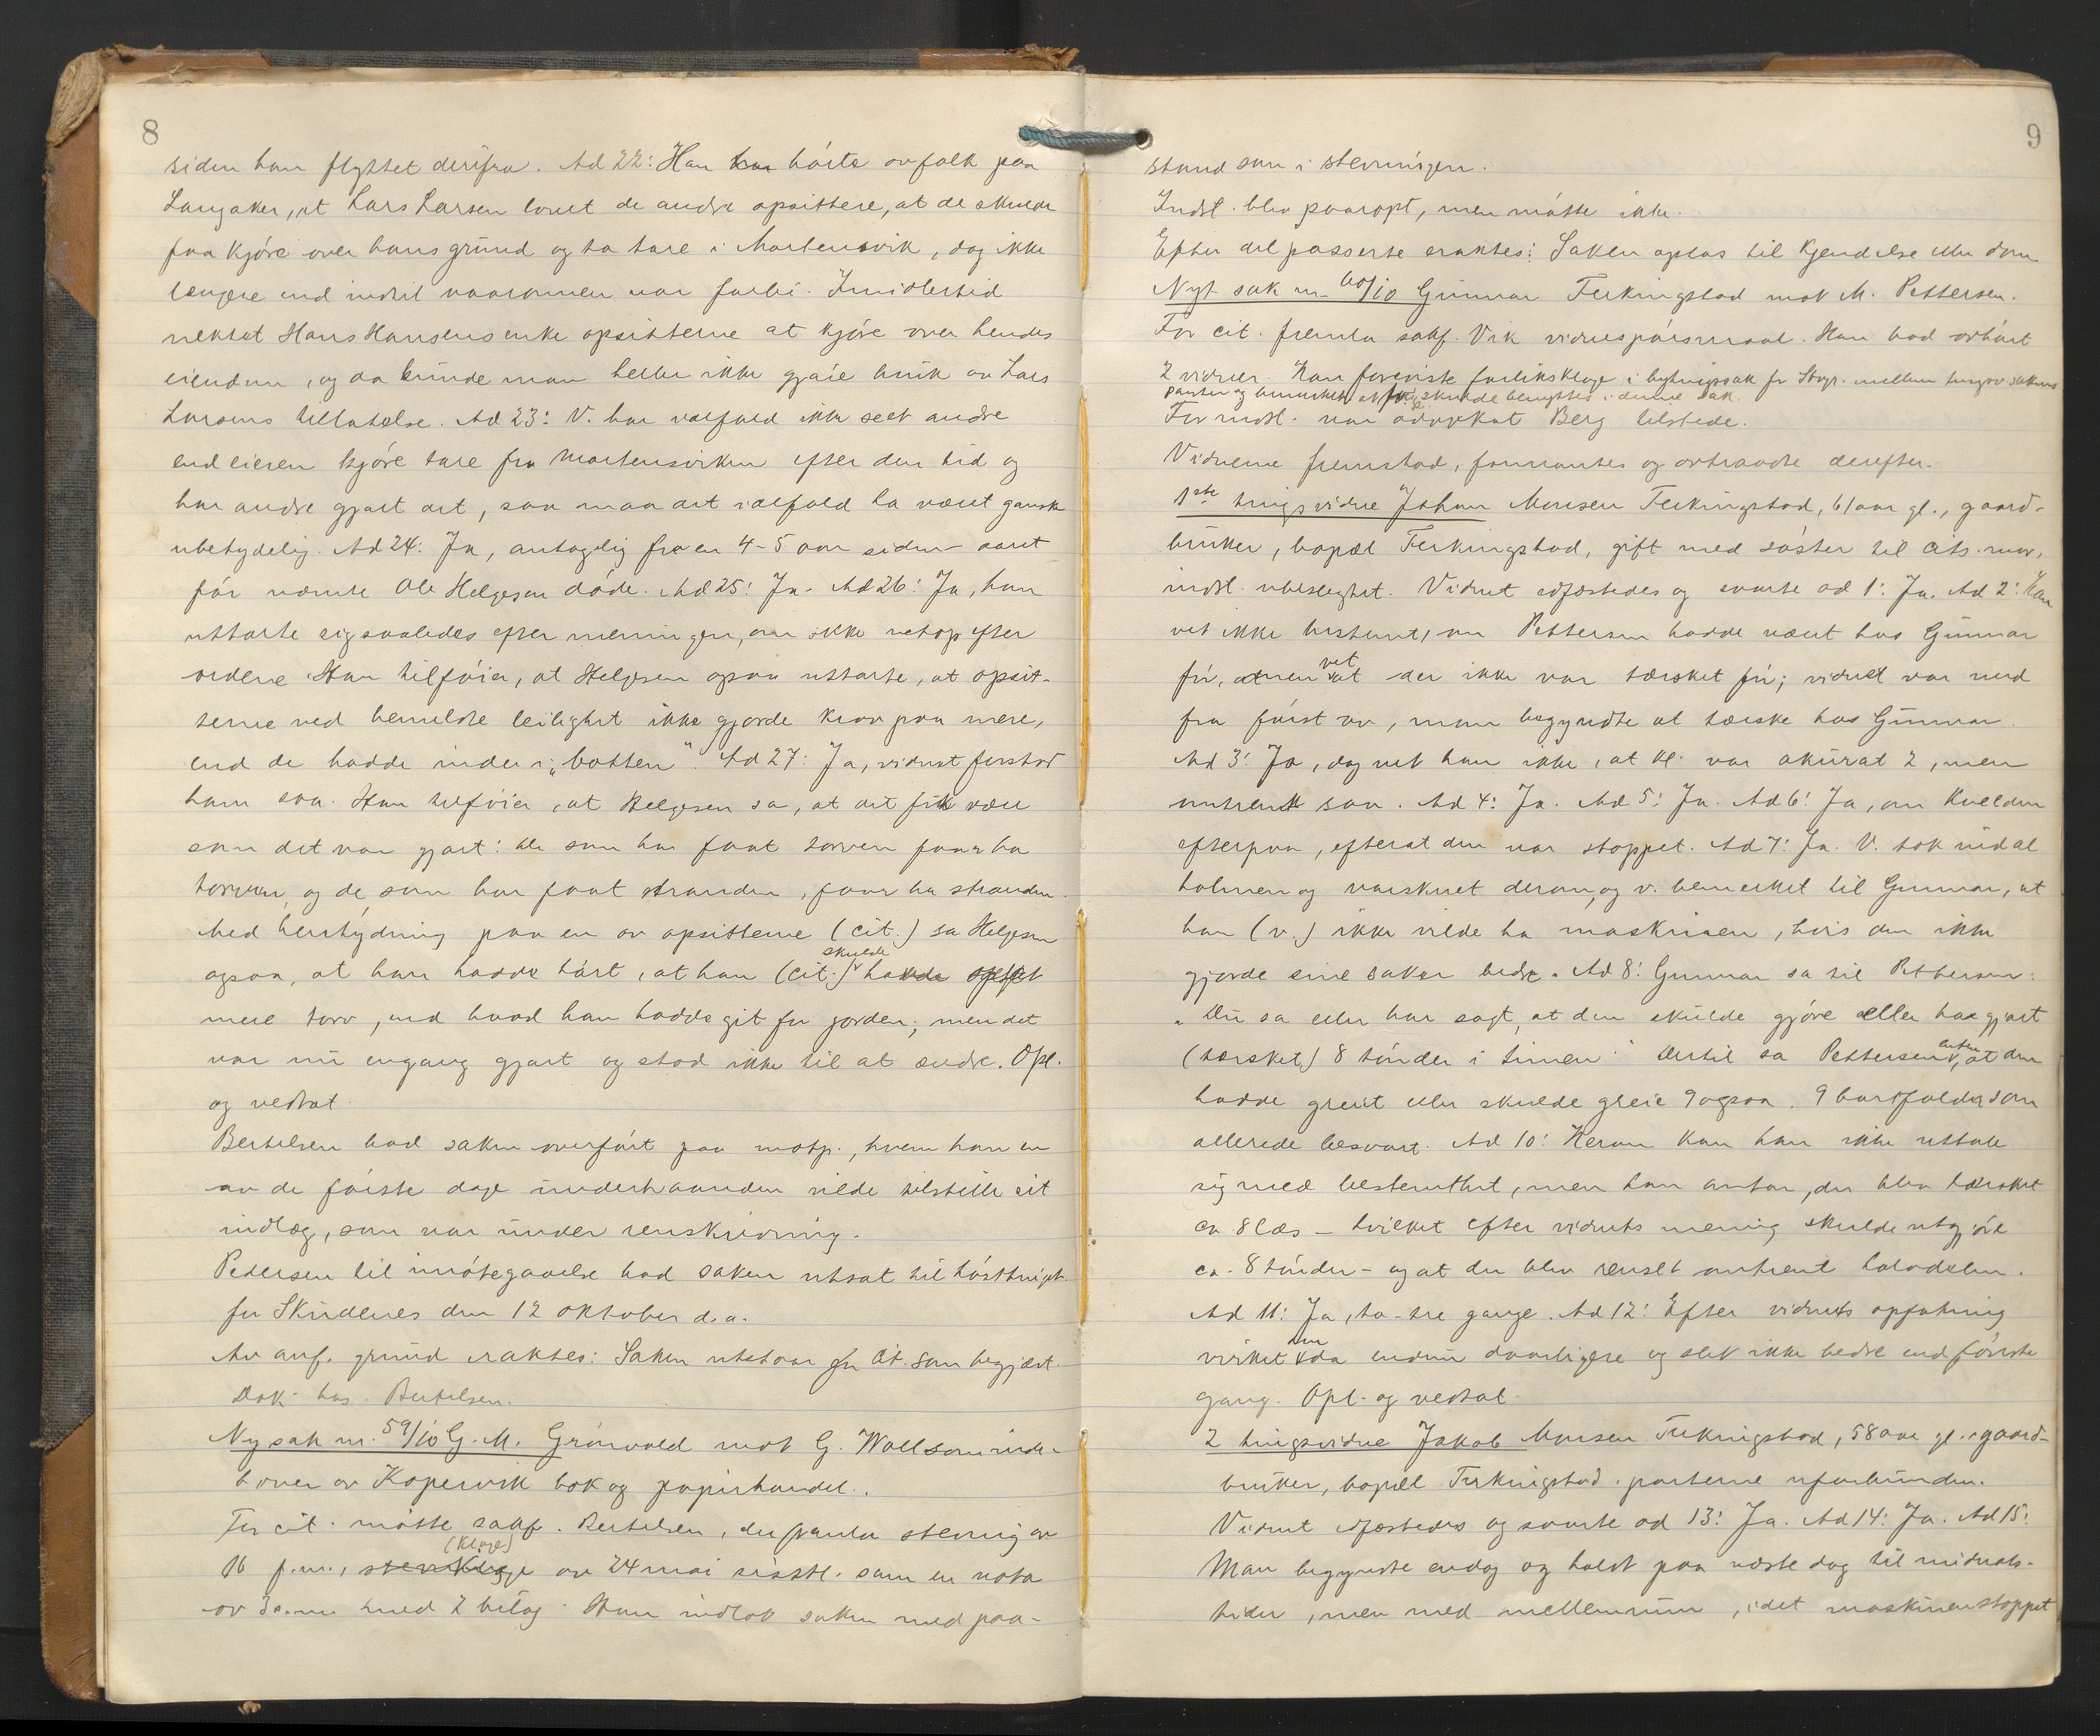 8
siden han flyttet derifra. Ad 22: Han hørte av folk paa
Langaker, at Lars Larsen lovet de andre opsittere, at de skulde
faa kjøre over hans grund og ta tare i Mortensvik, dog ikke
længere end indtil vaaronnen var forbi. Imidlertid
nektet Hans Hansens enke opsitterne at kjøre over hendes
eiendom, og da kunde man heller ikke gjøre bruk av Lars
Larsens tillatelse. Ad 23: V. har ialfald ikke seet andre
end eieren kjøre tare fra Mortensviken efter den tid og
har andre gjort det, saa maa det ialfald ha været ganske
ubetydelig. Ad 24: Ja, antagelig for en 4-5 aar siden - aaret
før nevnte Ole Helgesen døde. Ad 25: Ja. Ad 26: Ja, han
uttalte sig saaledes efter meningen, om ikke netop efter
ordene. Han tilføier, at Helgesen ogsaa uttalte, at opsit-
terne ved bemeldte leilighet ikke gjorde krav paa mere,
end de hadde inde i "botten". Ad 27: Ja, vidnet forstod
ham saa. Han tilføier, at Helgesen sa, at det fik være
som det var gjort: de som har faat torven faar ha
torven, og de som har faat stranden, faar ha stranden.
Med hentydning paa en av opsitterne (cit.) sa Helgesen
ogsaa, at han hadde hørt, at han (cit.) skulde ha
mere torv, end hvad han hadde git for jorden; men det
var nu engang gjort og stod ikke til at ændre. Opl.
og vedtat.
Bertelsen bad saken overført paa motp., hvem han en
av de første dage underhaanden vilde tilstille sit
indlæg, som var under renskrivning.
Pedersen til imøtegaaelse bad saken utsat til høsttinget
for Skudenes den 12 oktober d.a.
Av anf. grund eraktes: Saken utstaar for cit. som begjært.
Dok. hos Bertelsen.
Ny sak nr. 59/10 G. M. Grønvold mot G. Wolls som inde-
haver av Kopervik bok og papirhandel.
For cit. møtte sakf. Bertelsen, der fremla stevning av
16 f.m., (klage) av 24 mai sisstl. samt en nota
av s.m. med 2 bilag. Han indlot saken med paa-
9
stand som i stevningen.
Indst. blev paaropt, men møtte ikke.
Efter det passerte eraktes: Saken optas til kjendelse eller dom
Nyt sak nr. 60/10 Gunnar Ferkingstad mot M. Pettersen.
For cit. fremla sakf. Vik vidnespørsmaal. Han bad avhørt
2 vidner. Han foreviste forliksklage i bygningssak for Stvgr. mellem tingsvsakens
parter og bemerket at skulde benyttes i denne sak.
For indst. var advokat Berg tilstede.
Vidnerne fremstod, formantes og avtraadte derefter.
1ste tingsvidne Johan Monsen Ferkingstad, 61 aar gl., gaard-
bruker, bopæl Ferkingstad, gift med søster til cits. mor,
indst. ubeslegtet. Vidnet edfæstedes og svarte ad 1: Ja. Ad 2: Han
vet ikke bestemt, om Pettersen hadde været hos Gunnar
før, men vet at der ikke var tærsket før; vidnet var med
fra først av, man begyndte at tærske hos Gunnar.
Ad 3: Ja, dog vet han ikke, at kl. var akurat 2, men
omtrent saa. Ad 4: Ja. Ad 5: Ja. Ad 6: Ja, om kvelden
efterpaa, efterat den var stoppet. Ad 7: Ja. V. tok ind at
halmen og varskuet derom, og v. bemerket til Gunnar, at
han (v.) ikke vilde ha maskinen, hvis den ikke
gjorde sine saker bedre. Ad 8: Gunnar sa til Pettersen:
"Du sa eller har sagt, at den skulde gjøre eller har gjort
(tærsket) 8 tønder i timen." Dertil sa Pettersen enten, at den
hadde greiet eller skulde greie 9 ogsaa. 9 bortfalder som
allerede besvart. Ad 10: Herom kan han ikke uttale
sig med bestemthet, men han antar, der blev tærsket
ca. 8 læs - hvilket efter vidnets mening skulde utgjøre
ca. 8 tønder - og at der blev renset omtrent halvdelen.
Ad 11: Ja, to-tre gange. Ad 12: Efter vidnets opfatning
virket den da endnu daarligere og slet ikke bedre end første
gang. Opl. og vedtat.
2 tingsvidne Jakob Monsen Ferkingstad, 58 aar gl., gaard-
bruker, bopæl Ferkingstad, parterne uforbunden.
Vidnet edfæstedes og svarte ad 13: Ja. Ad 14: Ja. Ad 15:
Man begyndte endog og holdt paa næste dag til middags-
tider, men med mellemrum, idet maskinen stoppet